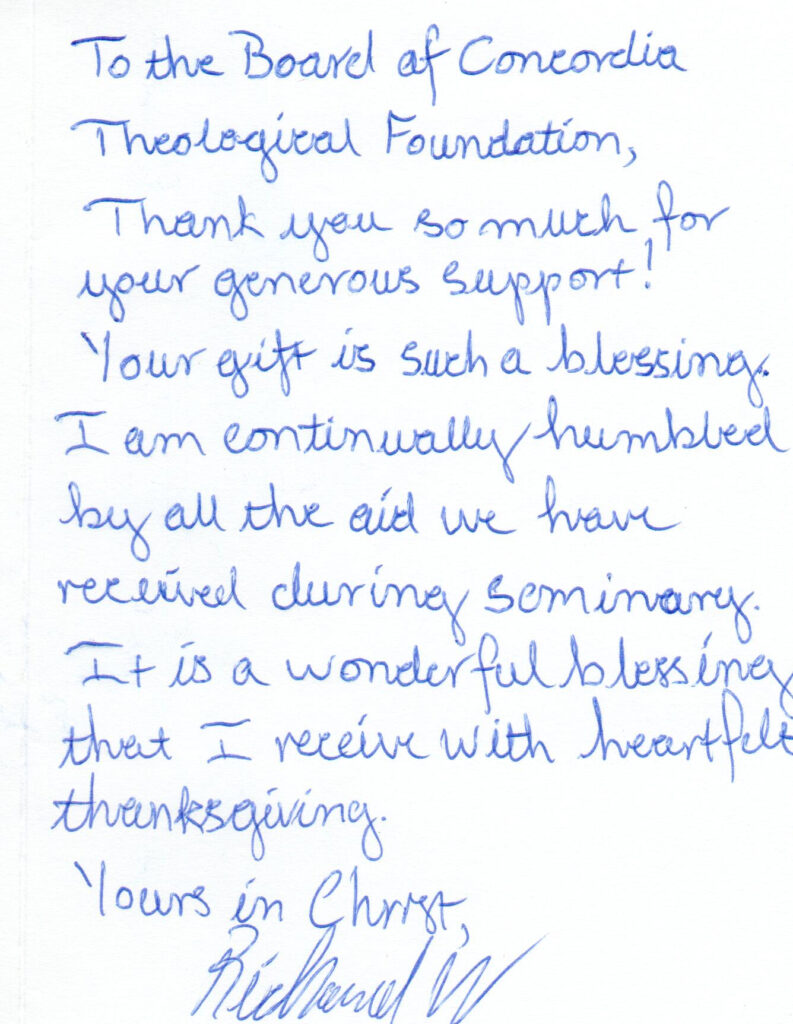 To the Board of Concordia
Theological Foundation,
Thank you so much for
your generous support!
Your gift is such a blessing.
I am continually humbled
by all the aid we have
received during seminary.
It is a wonderful blessing
that I receive with heartfelt
thanksgiving.
Yours in Christ,
Richard W